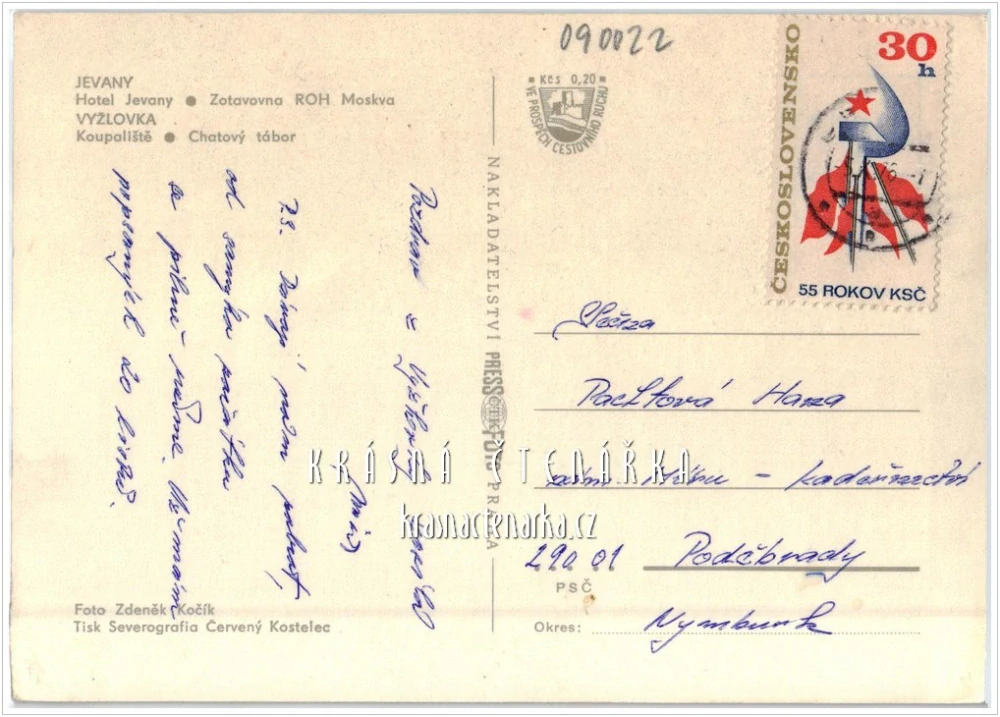 090022
JEVANY
Hotel Jevany ● Zotavovna ROH Moskva
VYŽLOVKA
Koupaliště ● Chatový tábor
Kčs 0,20
VE PROSPĚCH CESTOVNÍHO RUCHU
ČESKOSLOVENSKO
30
h
55 ROKOV KSČ
NAKLADATELSTVÍ PRESSFOTO PRAHA
ČTK
Pozdrav z Vyžlovky
P.S. Dávají nám zabrat,
od samého začátku
se pilně učíme. Už mám
popsaných 20 listů.
Pachtová Hana
dům - kadeřnictví
290 01 Poděbrady
PSČ
Okres: Nymburk
Foto Zdeněk Kočík
Tisk Severografia Červený Kostelec
KRÁSNÁ ČTENÁŘKA
krasnactenarka.cz